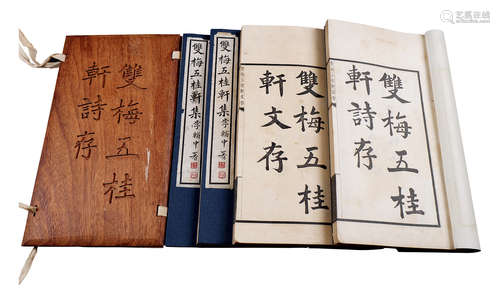 雙梅五桂
軒詩存
雙梅五桂軒集
雙梅五桂軒集
雙梅五桂
軒文存
雙梅五桂
軒詩存